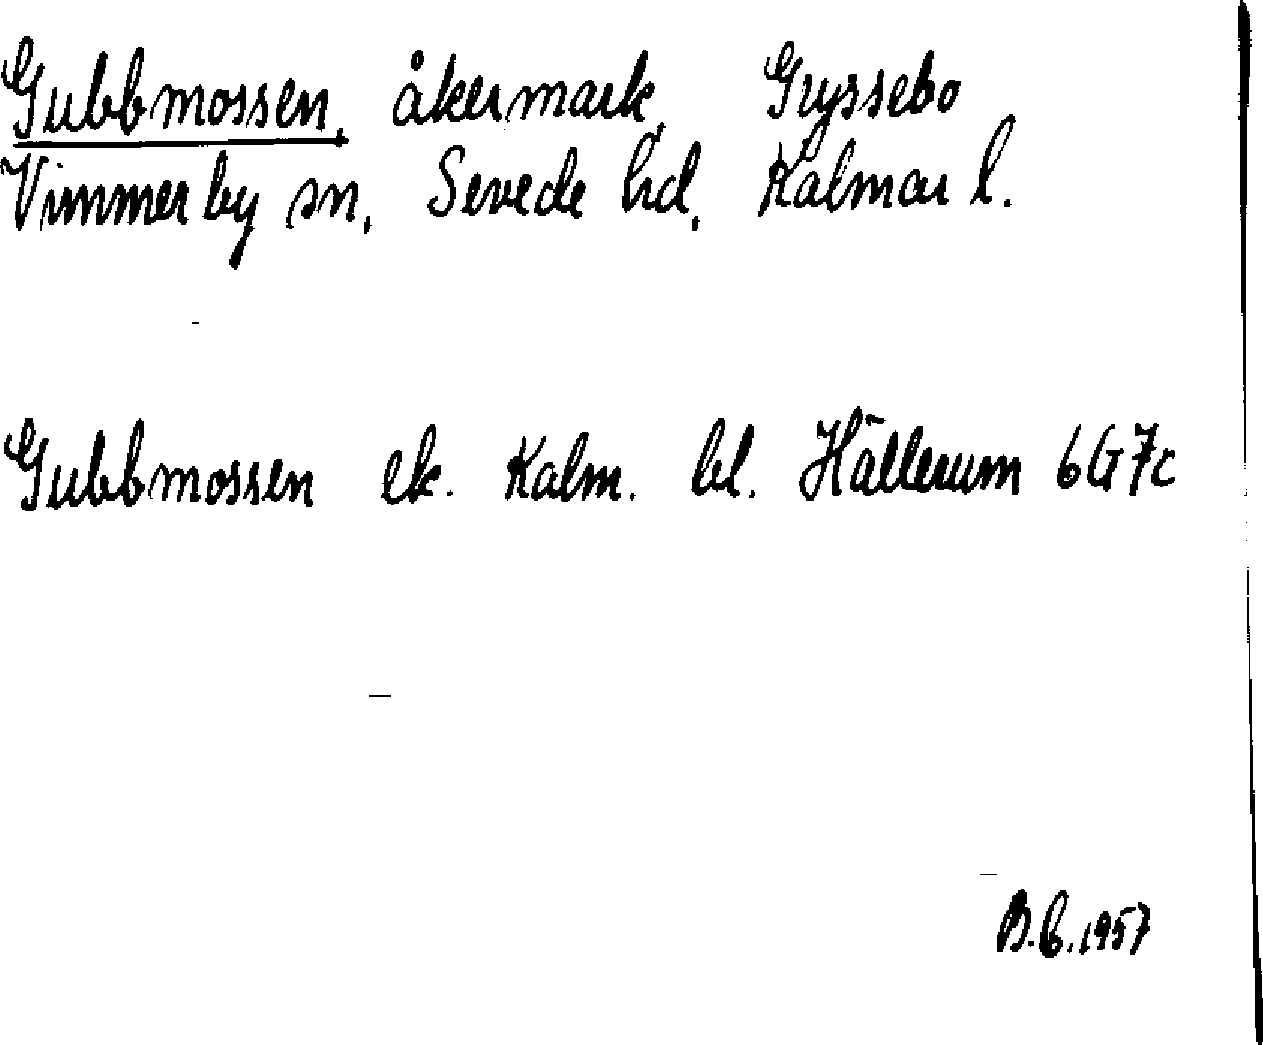 Gubbmossen, åkermark, Gryssebo
Vimmerby sn, Sevede hd, Kalmar l.
Gubbmossen ek. Kalm. bl. Hällerum 6G7c
B.G. 1957